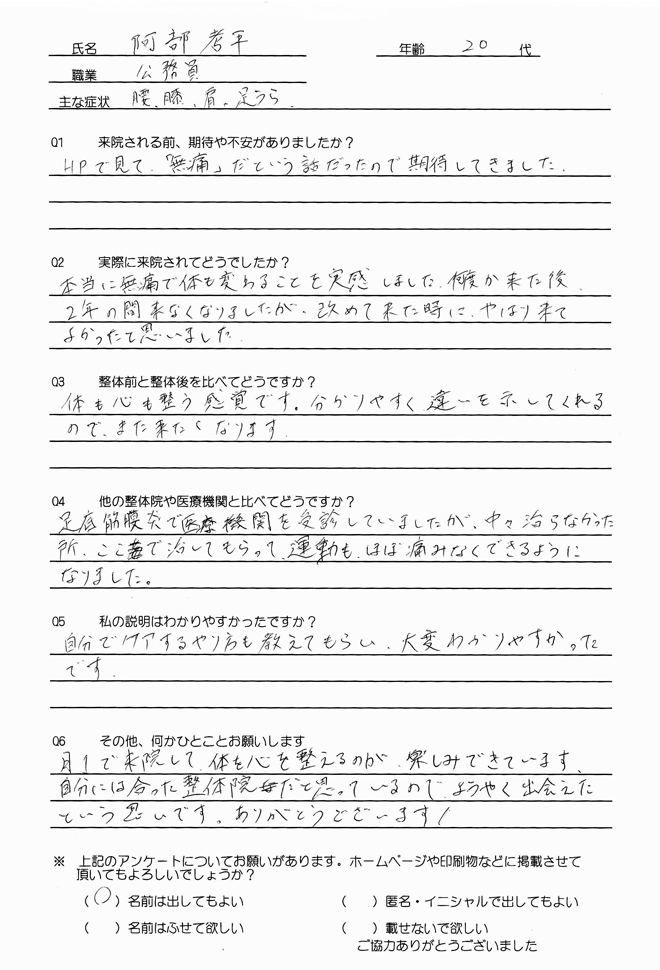 氏名 阿部孝平 年齢 20 代
職業 公務員
主な症状 腰、膝、肩、足うら
Q1 来院される前、期待や不安がありましたか？
HPで見て、「無痛」だという話だったので期待してきました。
Q2 実際に来院されてどうでしたか？
本当に無痛で体も変わることを実感しました。何度か来た後、
2年の間来なくなりましたが、改めて来た時に、やはり来て
よかったと思いました。
Q3 整体前と整体後を比べてどうですか？
体も心も整う感覚です。分かりやすく違いを示してくれる
ので、また来たくなります。
Q4 他の整体院や医療機関と比べてどうですか？
足底筋膜炎で医療機関を受診していましたが、中々治らなかった
所、ここで治してもらって、運動も、ほぼ痛みなくできるように
なりました。
Q5 私の説明はわかりやすかったですか？
自分でケアするやり方も教えてもらい、大変わかりやすかった
です。
Q6 その他、何かひとことお願いします
月1で来院して、体も心を整えるのが、楽しみできています。
自分には合った整体院だと思っているので、ようやく出会えた
という思いです。ありがとうございます!
※ 上記のアンケートについてお願いがあります。ホームページや印刷物などに掲載させて
頂いてもよろしいでしょうか？
(○) 名前は出してもよい ( ) 匿名・イニシャルで出してもよい
( ) 名前はふせて欲しい ( ) 載せないで欲しい
ご協力ありがとうございました